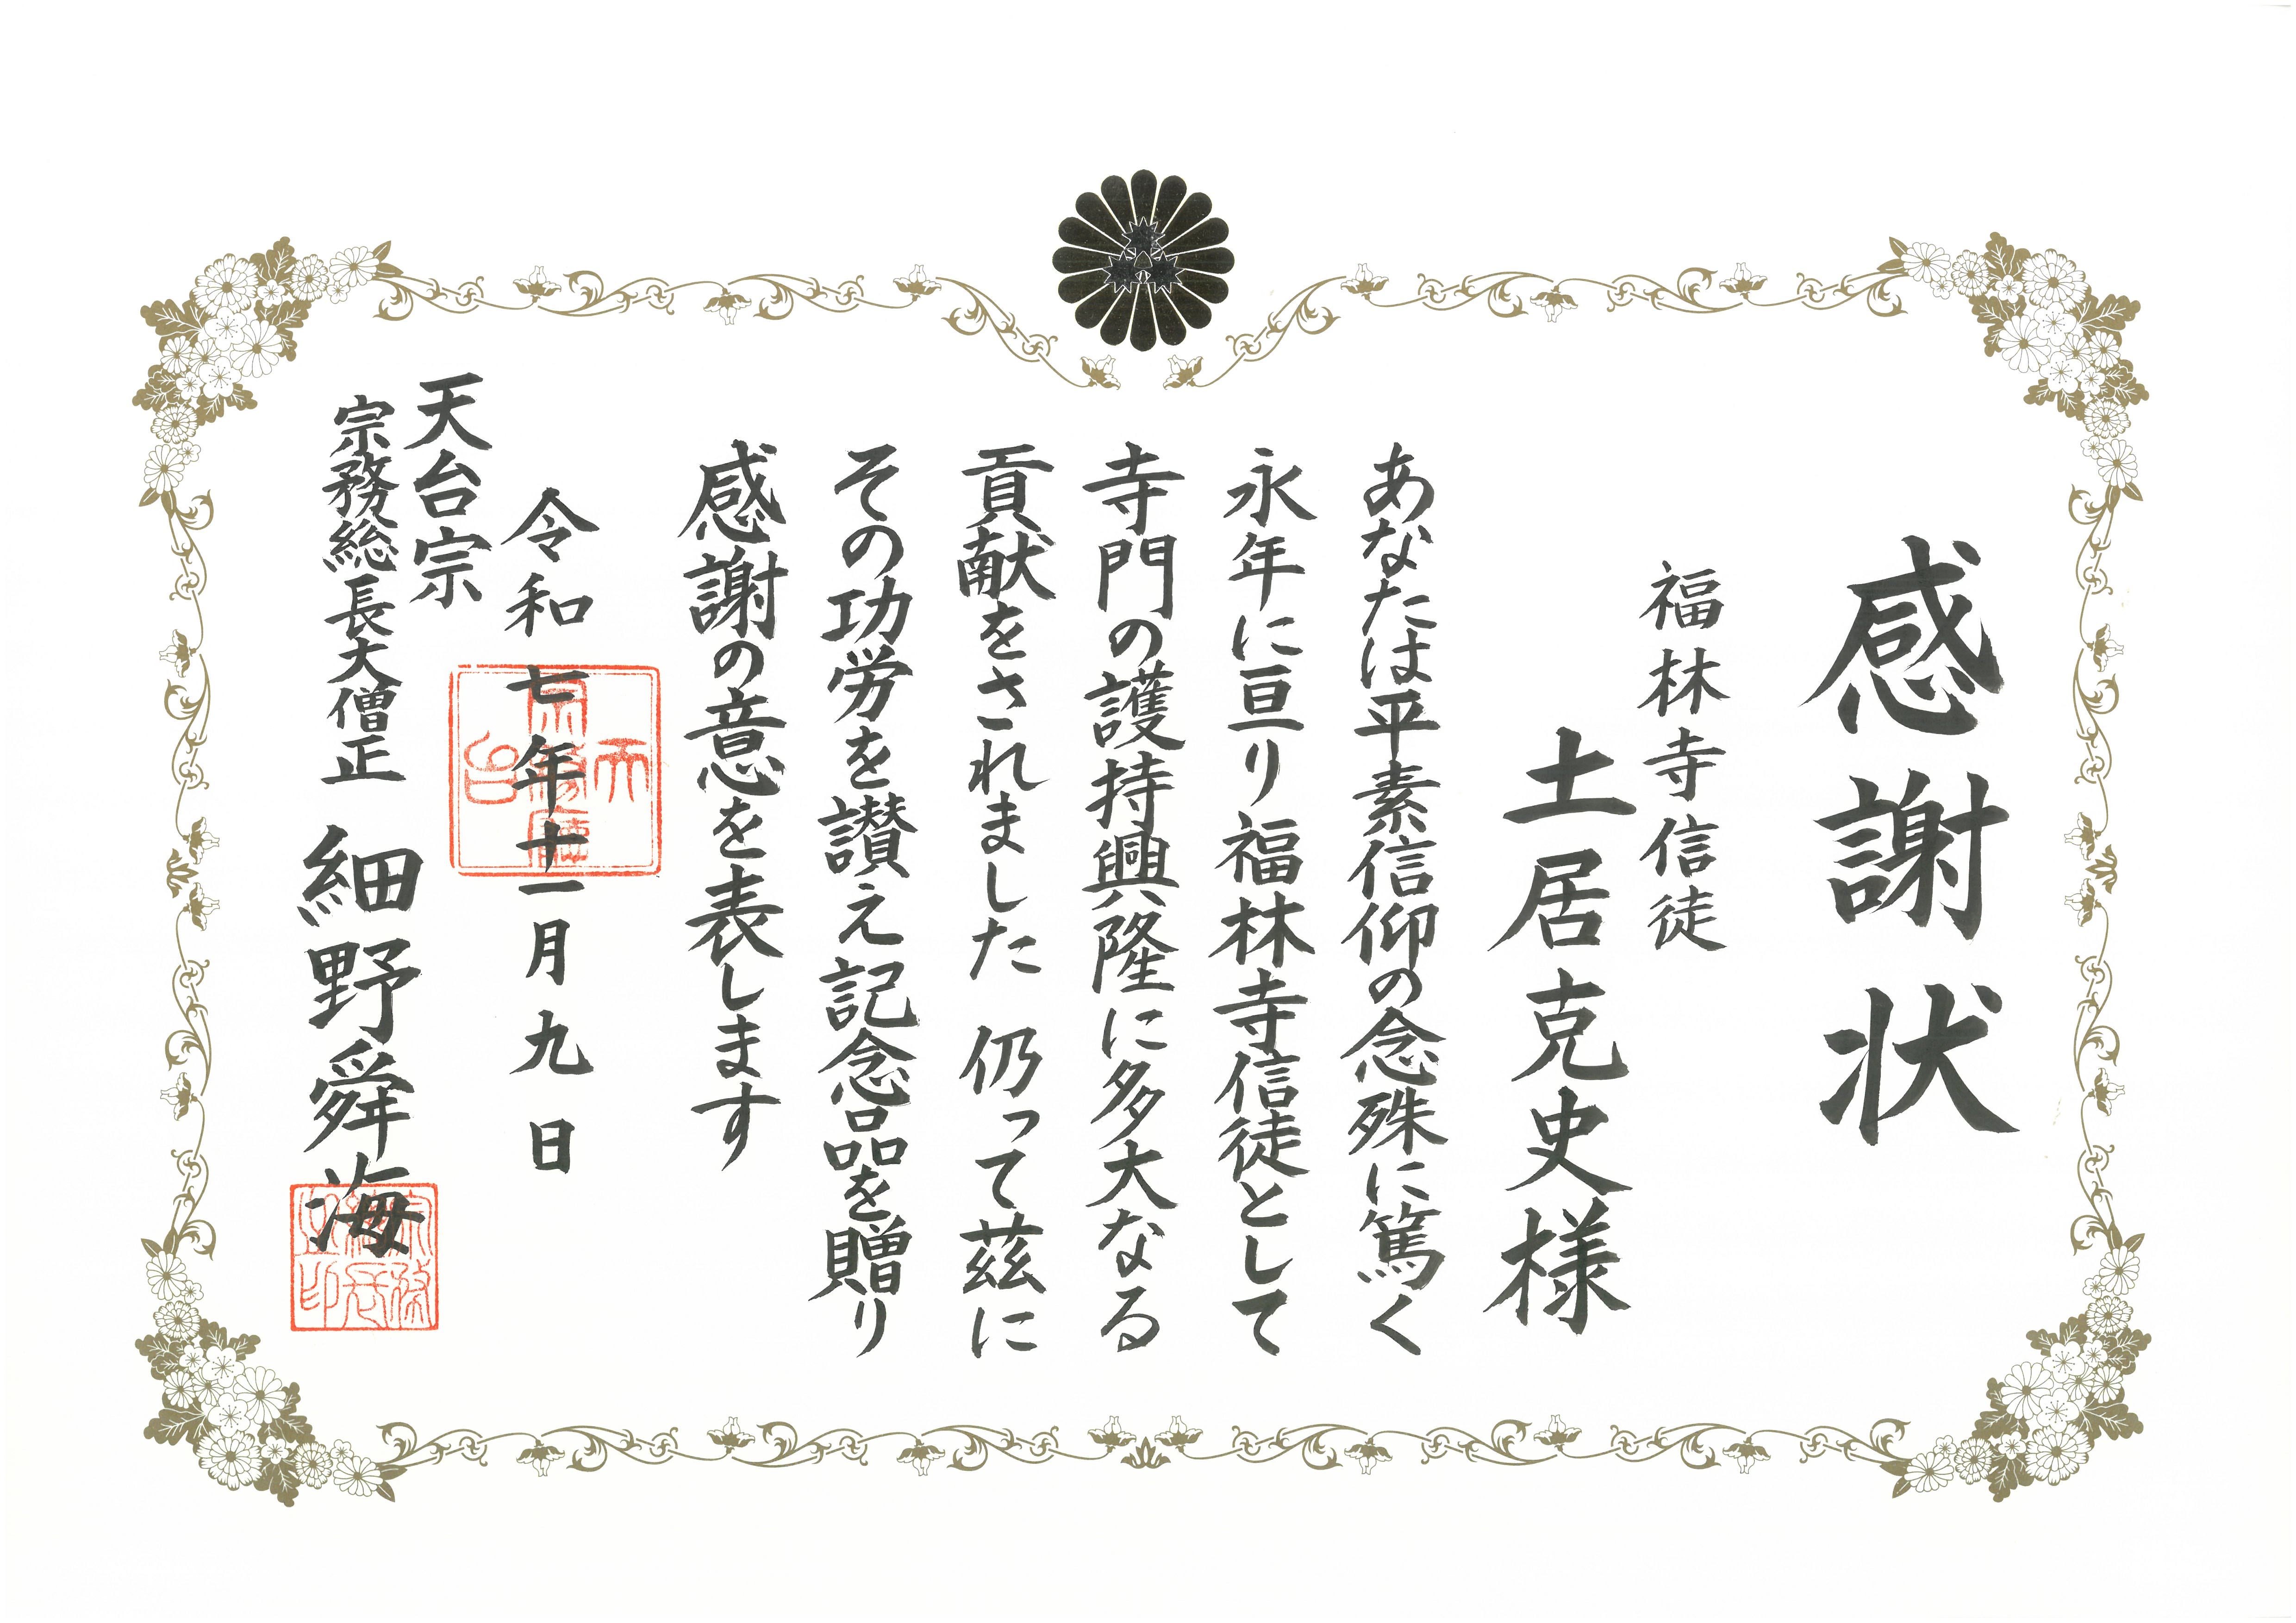 感謝状
福林寺信徒
土居克史様
あなたは平素信仰の念殊に篤く
永年に亘り福林寺信徒として
寺門の護持興隆に多大なる
貢献をされました 仍って茲に
その功労を讃え記念品を贈り
感謝の意を表します
令和七年十一月九日
天台宗
宗務総長大僧正 細野舜海
天台宗務庁
宗務総長之印